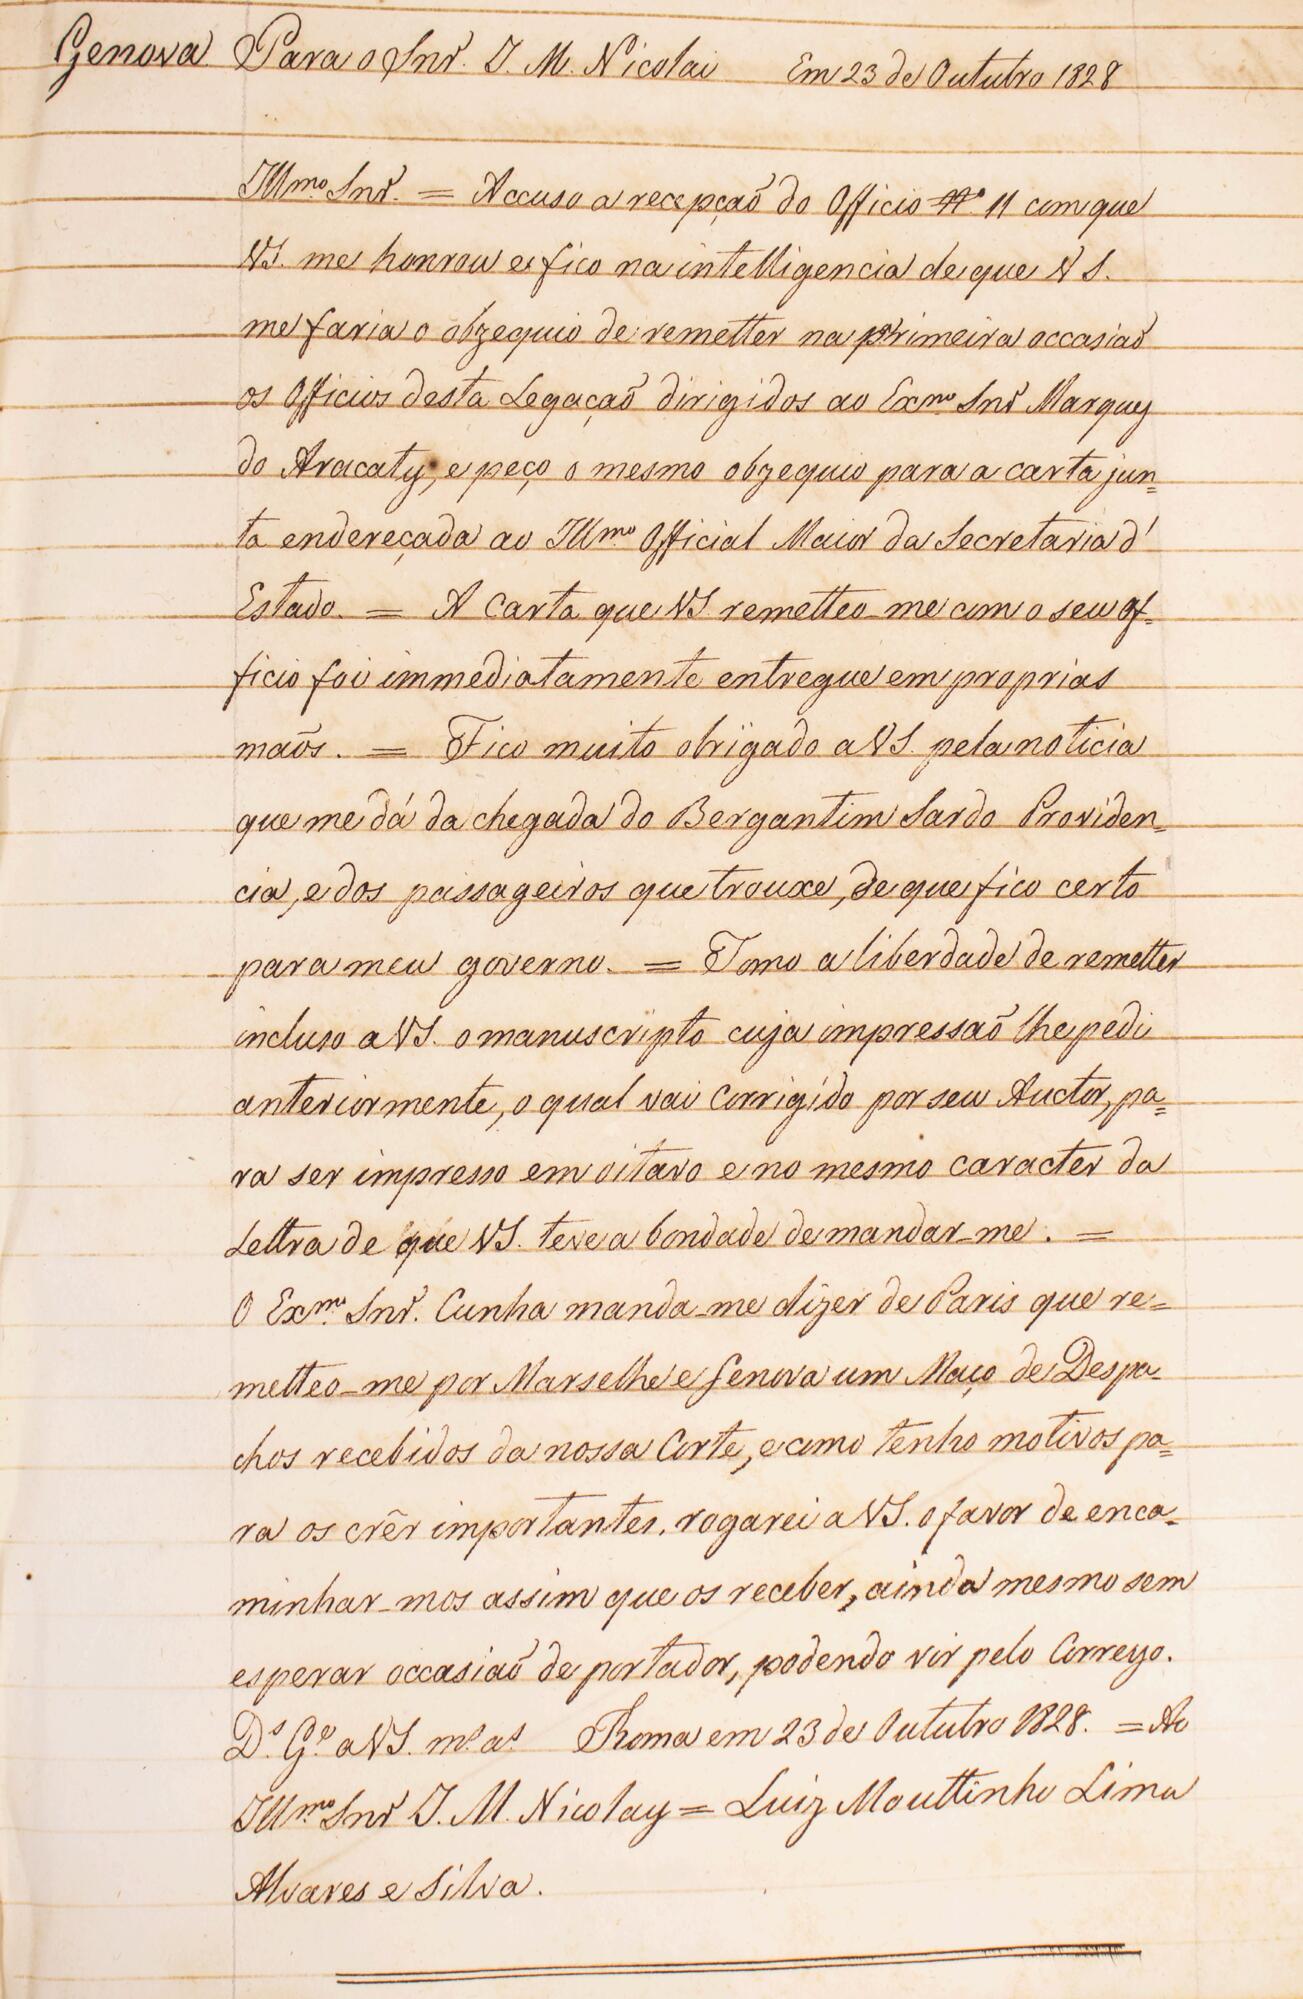 Genova Para o Snr. J. M. Nicolai Em 23 de Outubro 1828
Illmo Snr. = Accuso a recepçaõ do Officio No. 11 com que
VS. me honrou e fico na intelligencia de que V S.
me faria o obzequio de remetter na primeira occasiaõ
os Officios desta Legaçaõ dirigidos ao Exmo Snr Marquez
do Aracaty, e peço o mesmo obzequio para a carta jun=
ta endereçada ao Illmo Official Maior da Secretaria d'
Estado. = A Carta que VS. remetteo-me com o seu Of=
ficio foi immediatamente entregue em proprias
maõs. = Fico muito obrigado a VS. pela noticia
que me dá da chegada do Bergantim Sardo Providen=
cia, e dos passageiros que trouxe, de que fico certo
para meu governo. = Tomo a liberdade de remetter
incluso a VS. o manuscripto cuja impressaõ lhe pedi
anteriormente, o qual vai Corrigido por seu Auctor, pa=
ra ser impresso em oitavo e no mesmo caracter da
Lettra de que VS. teve a bondade de mandar-me. =
O Exmo. Snr. Cunha manda-me dizer de Paris que re=
metteo-me por Marselhe e Genova um Maço de Despa=
chos recebidos da nossa Corte, e como tenho motivos pa=
ra os crêr importantes, rogarei a VS. o favor de enca=
minhar-mos assim que os receber, ainda mesmo sem
esperar occasiaõ de portador, podendo vir pelo Correyo.
Ds. Ge. a VS. ms. as. Roma em 23 de Outubro 1828. = Ao
Illmo Snr J. M. Nicolay = Luiz Mouttinho Lima
Alvares e Silva.